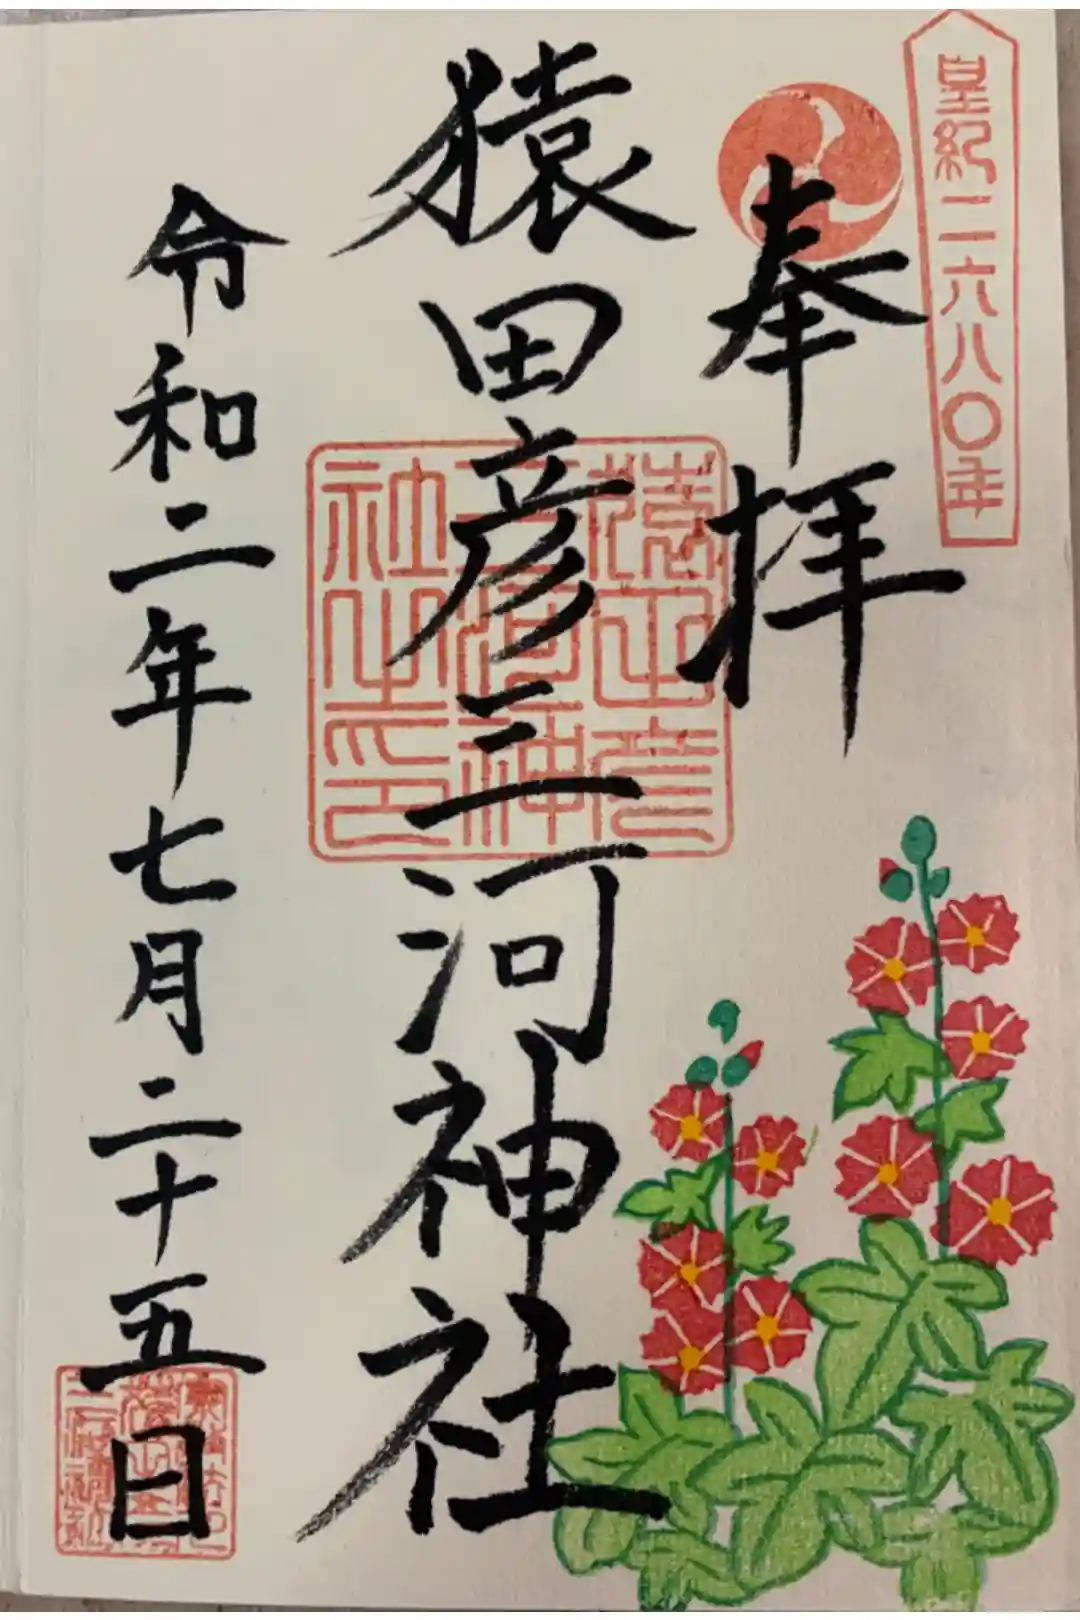 皇紀二六八〇年
奉拝
猿田彦三河神社
猿田彦
三河神
社之印
令和二年七月二十五日